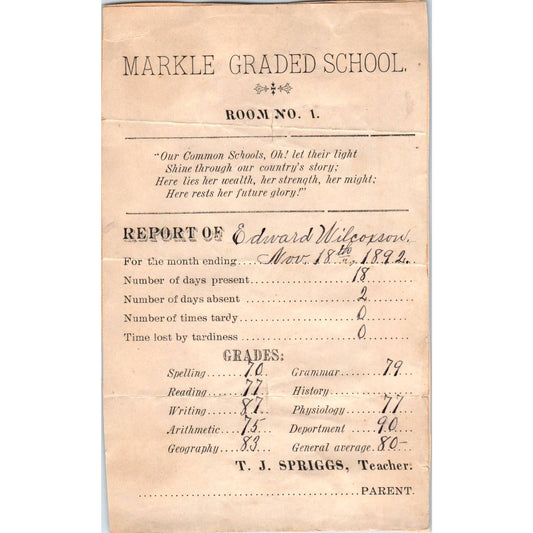 MARKLE GRADED SCHOOL.
ROOM NO. 1.
"Our Common Schools, Oh! let their light
Shine through our country's story;
Here lies her wealth, her strength, her might;
Here rests her future glory!"
REPORT OF Edward Wilcoxson.
For the month ending....Nov. 18th, 1892.
Number of days present 18
Number of days absent 2
Number of times tardy 0
Time lost by tardiness 0
GRADES:
Spelling 70 Grammar 79
Reading 77 History
Writing 87 Physiology 77
Arithmetic 75 Deportment 90
Geography 83 General average 80-
T. J. SPRIGGS, Teacher.
PARENT.